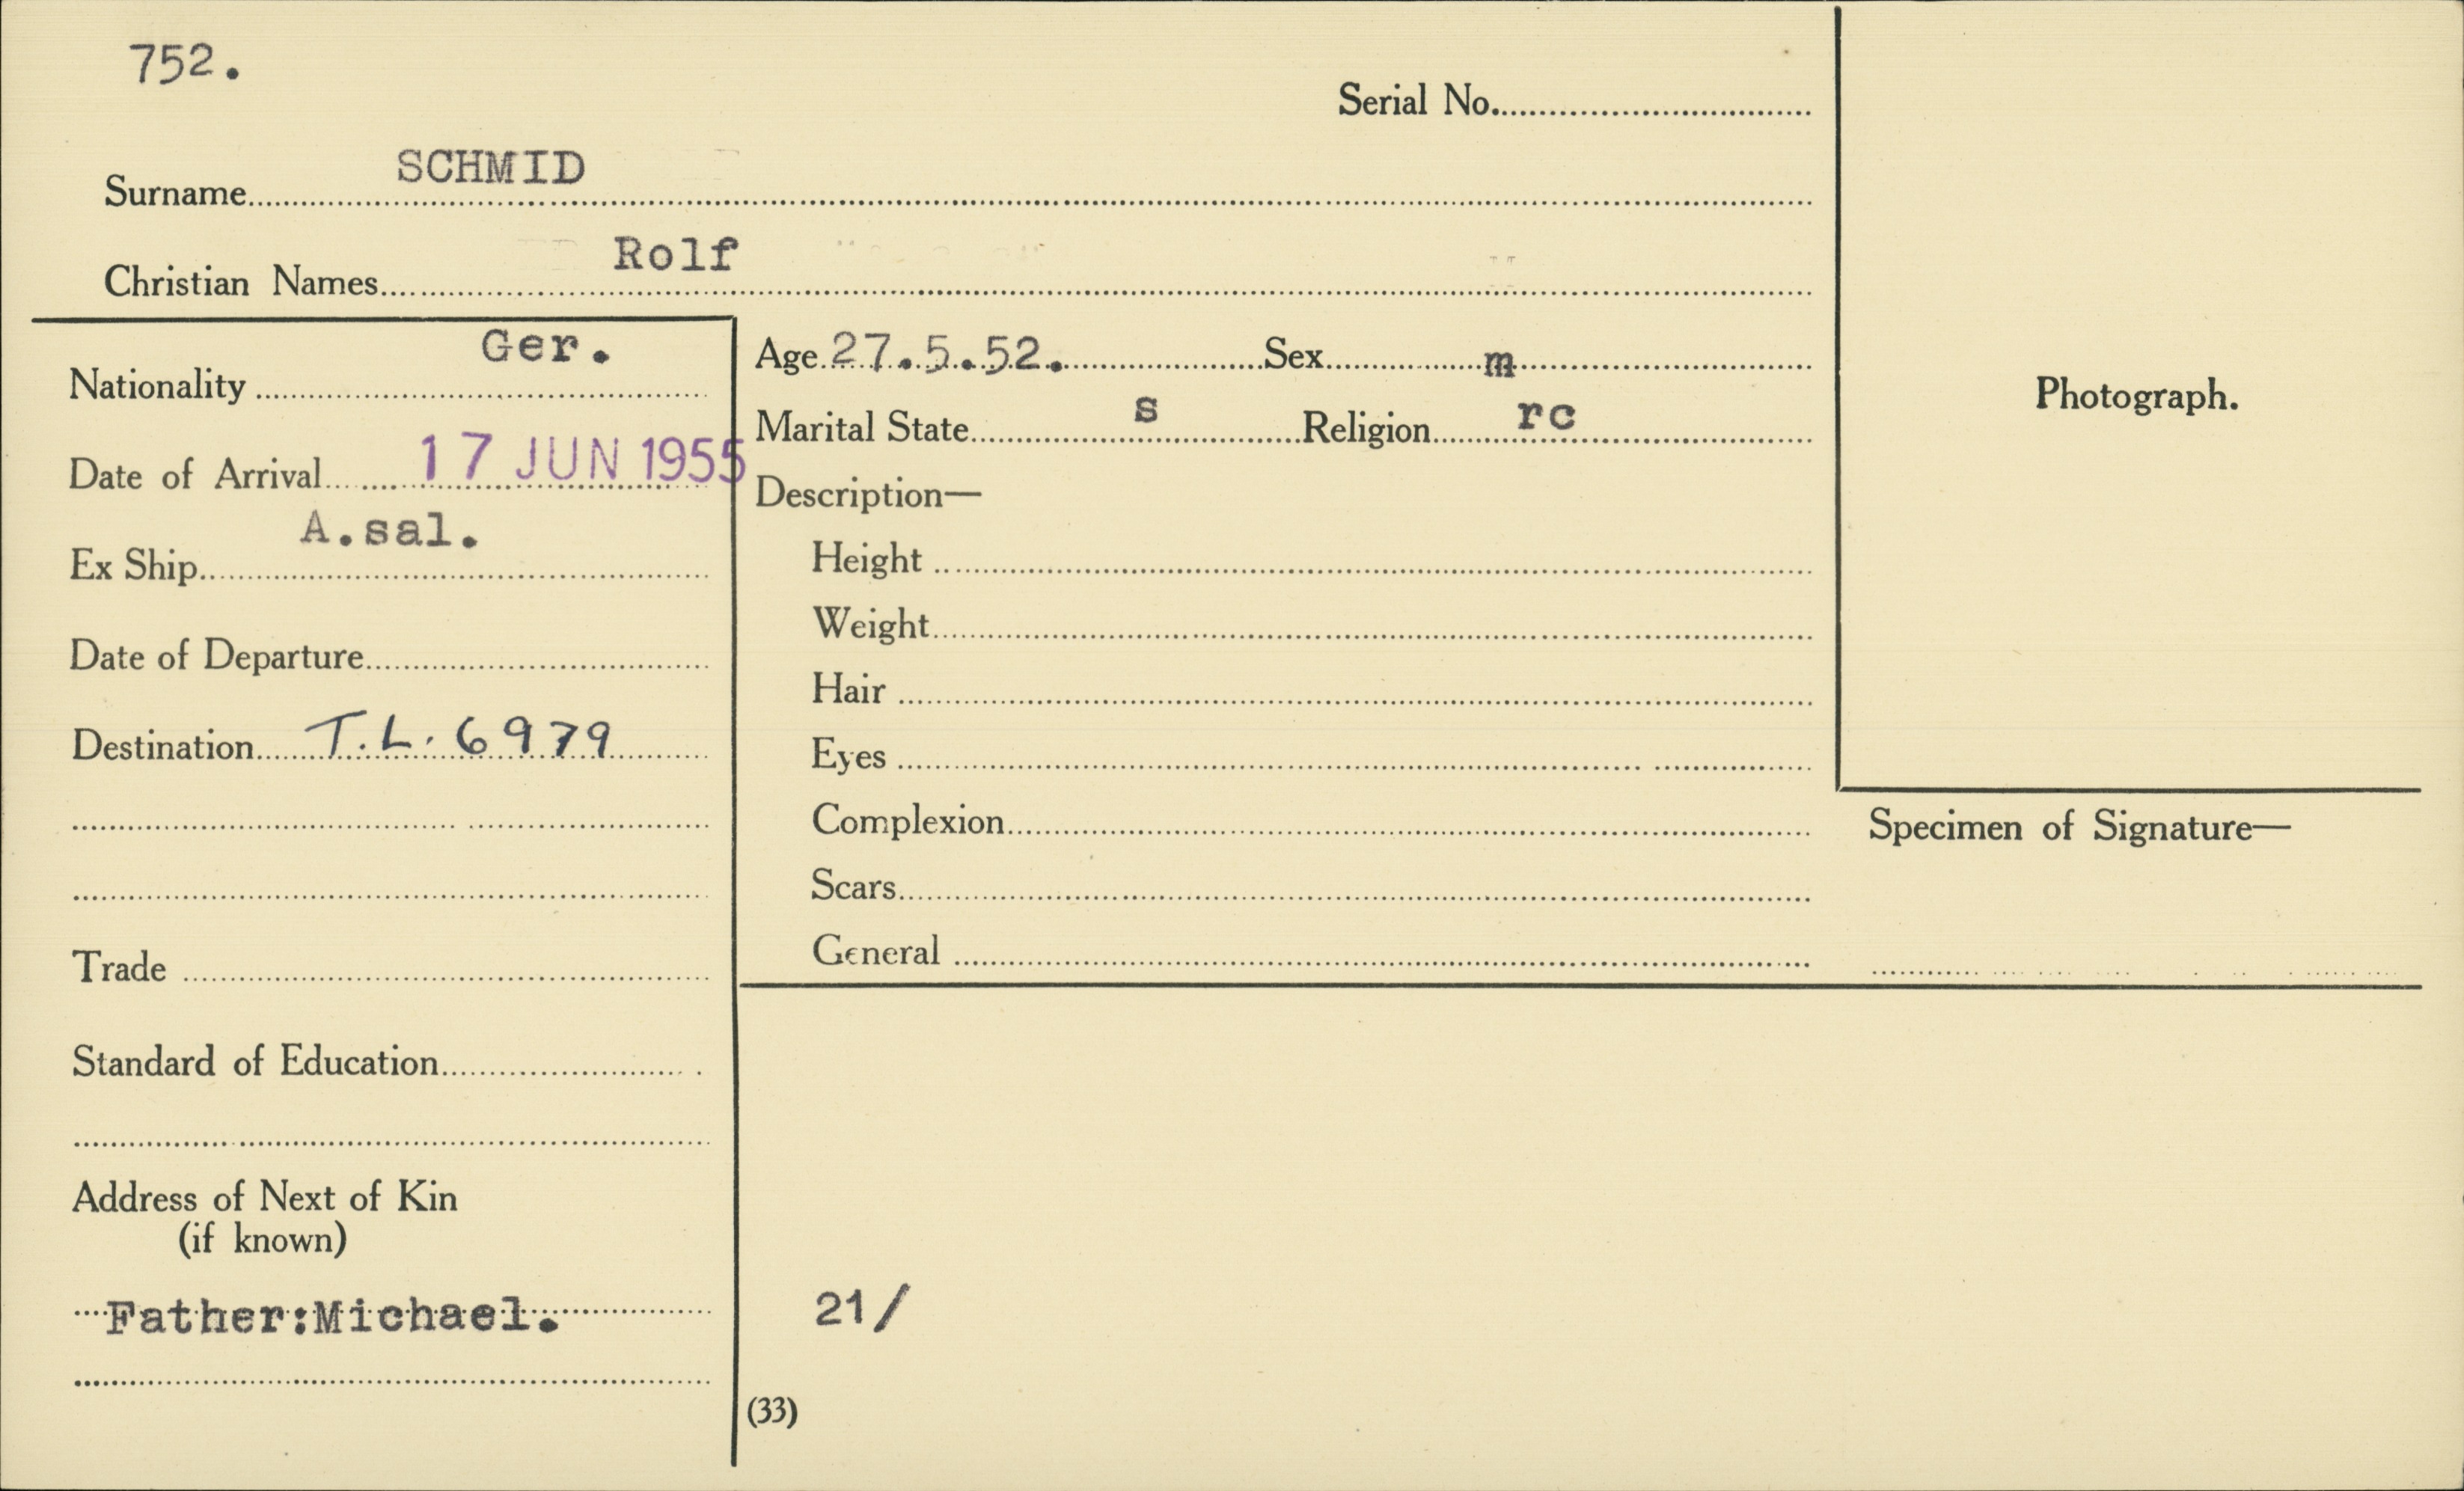 752.
Serial No.
SCHMID
Surname
Rolf
Christian Names
Ger.
Nationality
17 JUN 1955
Date of Arrival
A.sal.
Ex Ship
Date of Departure
Destination T.L. 6979
Trade
Standard of Education
Address of Next of Kin
(if known)
Father:Michael.
Age 27.5.52. Sex m
Marital State s Religion rc
Description—
Height
Weight
Hair
Eyes
Complexion
Scars
General
21/
(33)
Photograph.
Specimen of Signature—